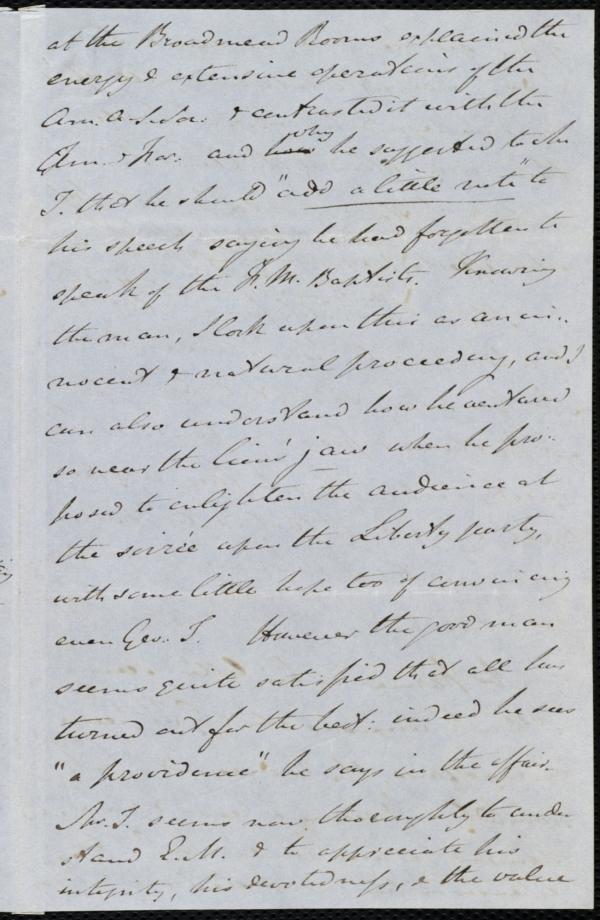 at the Broadmead Rooms explained the
energy & extensive operations of the
Am. A. S. So. & contrasted it with the
Am. & For. and how why he suggested to Mr
T. that he should "add a little note" to
his speech saying he had forgotten to
speak of the F. W. Baptists. Knowing
the man, I look upon this as an in-
nocent & natural proceeding, and I
can also understand how he ventured
so near the lion's jaw when he pro-
posed to enlighten the audience at
the soirée upon the Liberty party,
with some little hope too of convincing
even Geo. T. However the good man
seems quite satisfied that all has
turned out for the best: indeed he sees
"a providence" he says in the affair.
Mr. T. seems now thoroughly to under
stand E. M. & to appreciate his
integrity, his devotedness, & the value